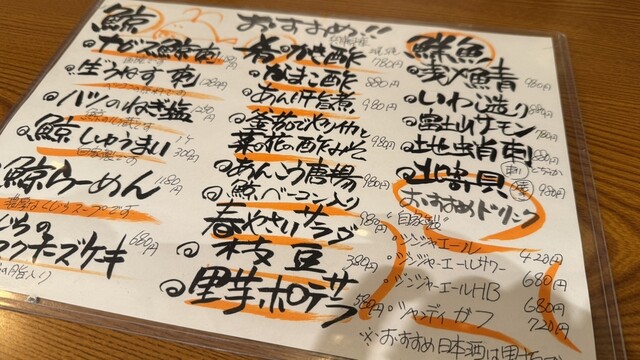 鯨
ナガス鯨刺
生うねす刺 1280円
ハツのねぎ塩
鯨しゅうまい
自家製です 1ケ 300円
鯨らーめん 1180円
ズケキ 680円
おすすめ!!
かき酢 780円
なまこ酢 880円
あん肝旨煮 980円
釜茹でやりいかと
菜の花の酢みそ 980円
あんこう唐揚 980円
鯨ベーコン入り
春やさいサラダ 980円
枝豆 380円
里芋ポテサラ 580円
鮮魚
鯖 980円
いわし造り
富士山サーモン
地蛸刺
地蛤貝
おすすめドリンク
"自家製"
・ジンジャエール 420円
・ジンジャーエールサワー 680円
・ジンジャーエールHB 680円
・シャンディガフ 720円
※おすすめ日本酒は